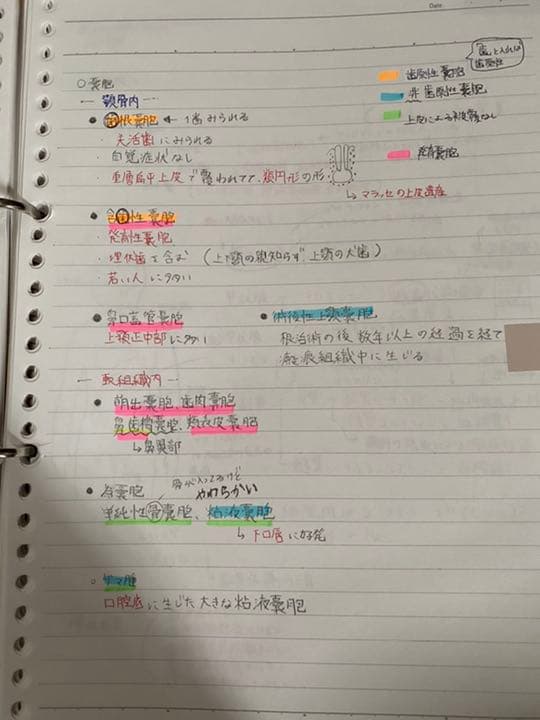 Date
○嚢胞
歯と入れば
歯原性
歯原性嚢胞
非歯原性嚢胞
上皮による被覆なし
発育嚢胞
― 顎骨内 ―
● 歯根嚢胞 ← 1番みられる
・失活歯にみられる
・自覚症状なし
・重層扁平上皮で覆われてて、類円形の形
→ マラッセの上皮遺残
● 含歯性嚢胞
・発育性嚢胞
・埋伏歯を含む (上下顎の親知らず 上顎の犬歯)
・若い人に多い
● 鼻口蓋管嚢胞
上顎正中部に多い
● 術後性上顎嚢胞
根治術の後 数年以上の経過を経て
瘢痕組織中に生じる
― 軟組織内 ―
● 萌出嚢胞、歯肉嚢胞
鼻歯槽嚢胞、類表皮嚢胞
→鼻翼部
● 偽嚢胞
骨が入ってるけど
やわらかい
単純性骨嚢胞、粘液嚢胞
→ 下口唇に好発
○ ガマ腫
口腔底に生じた大きな粘液嚢胞